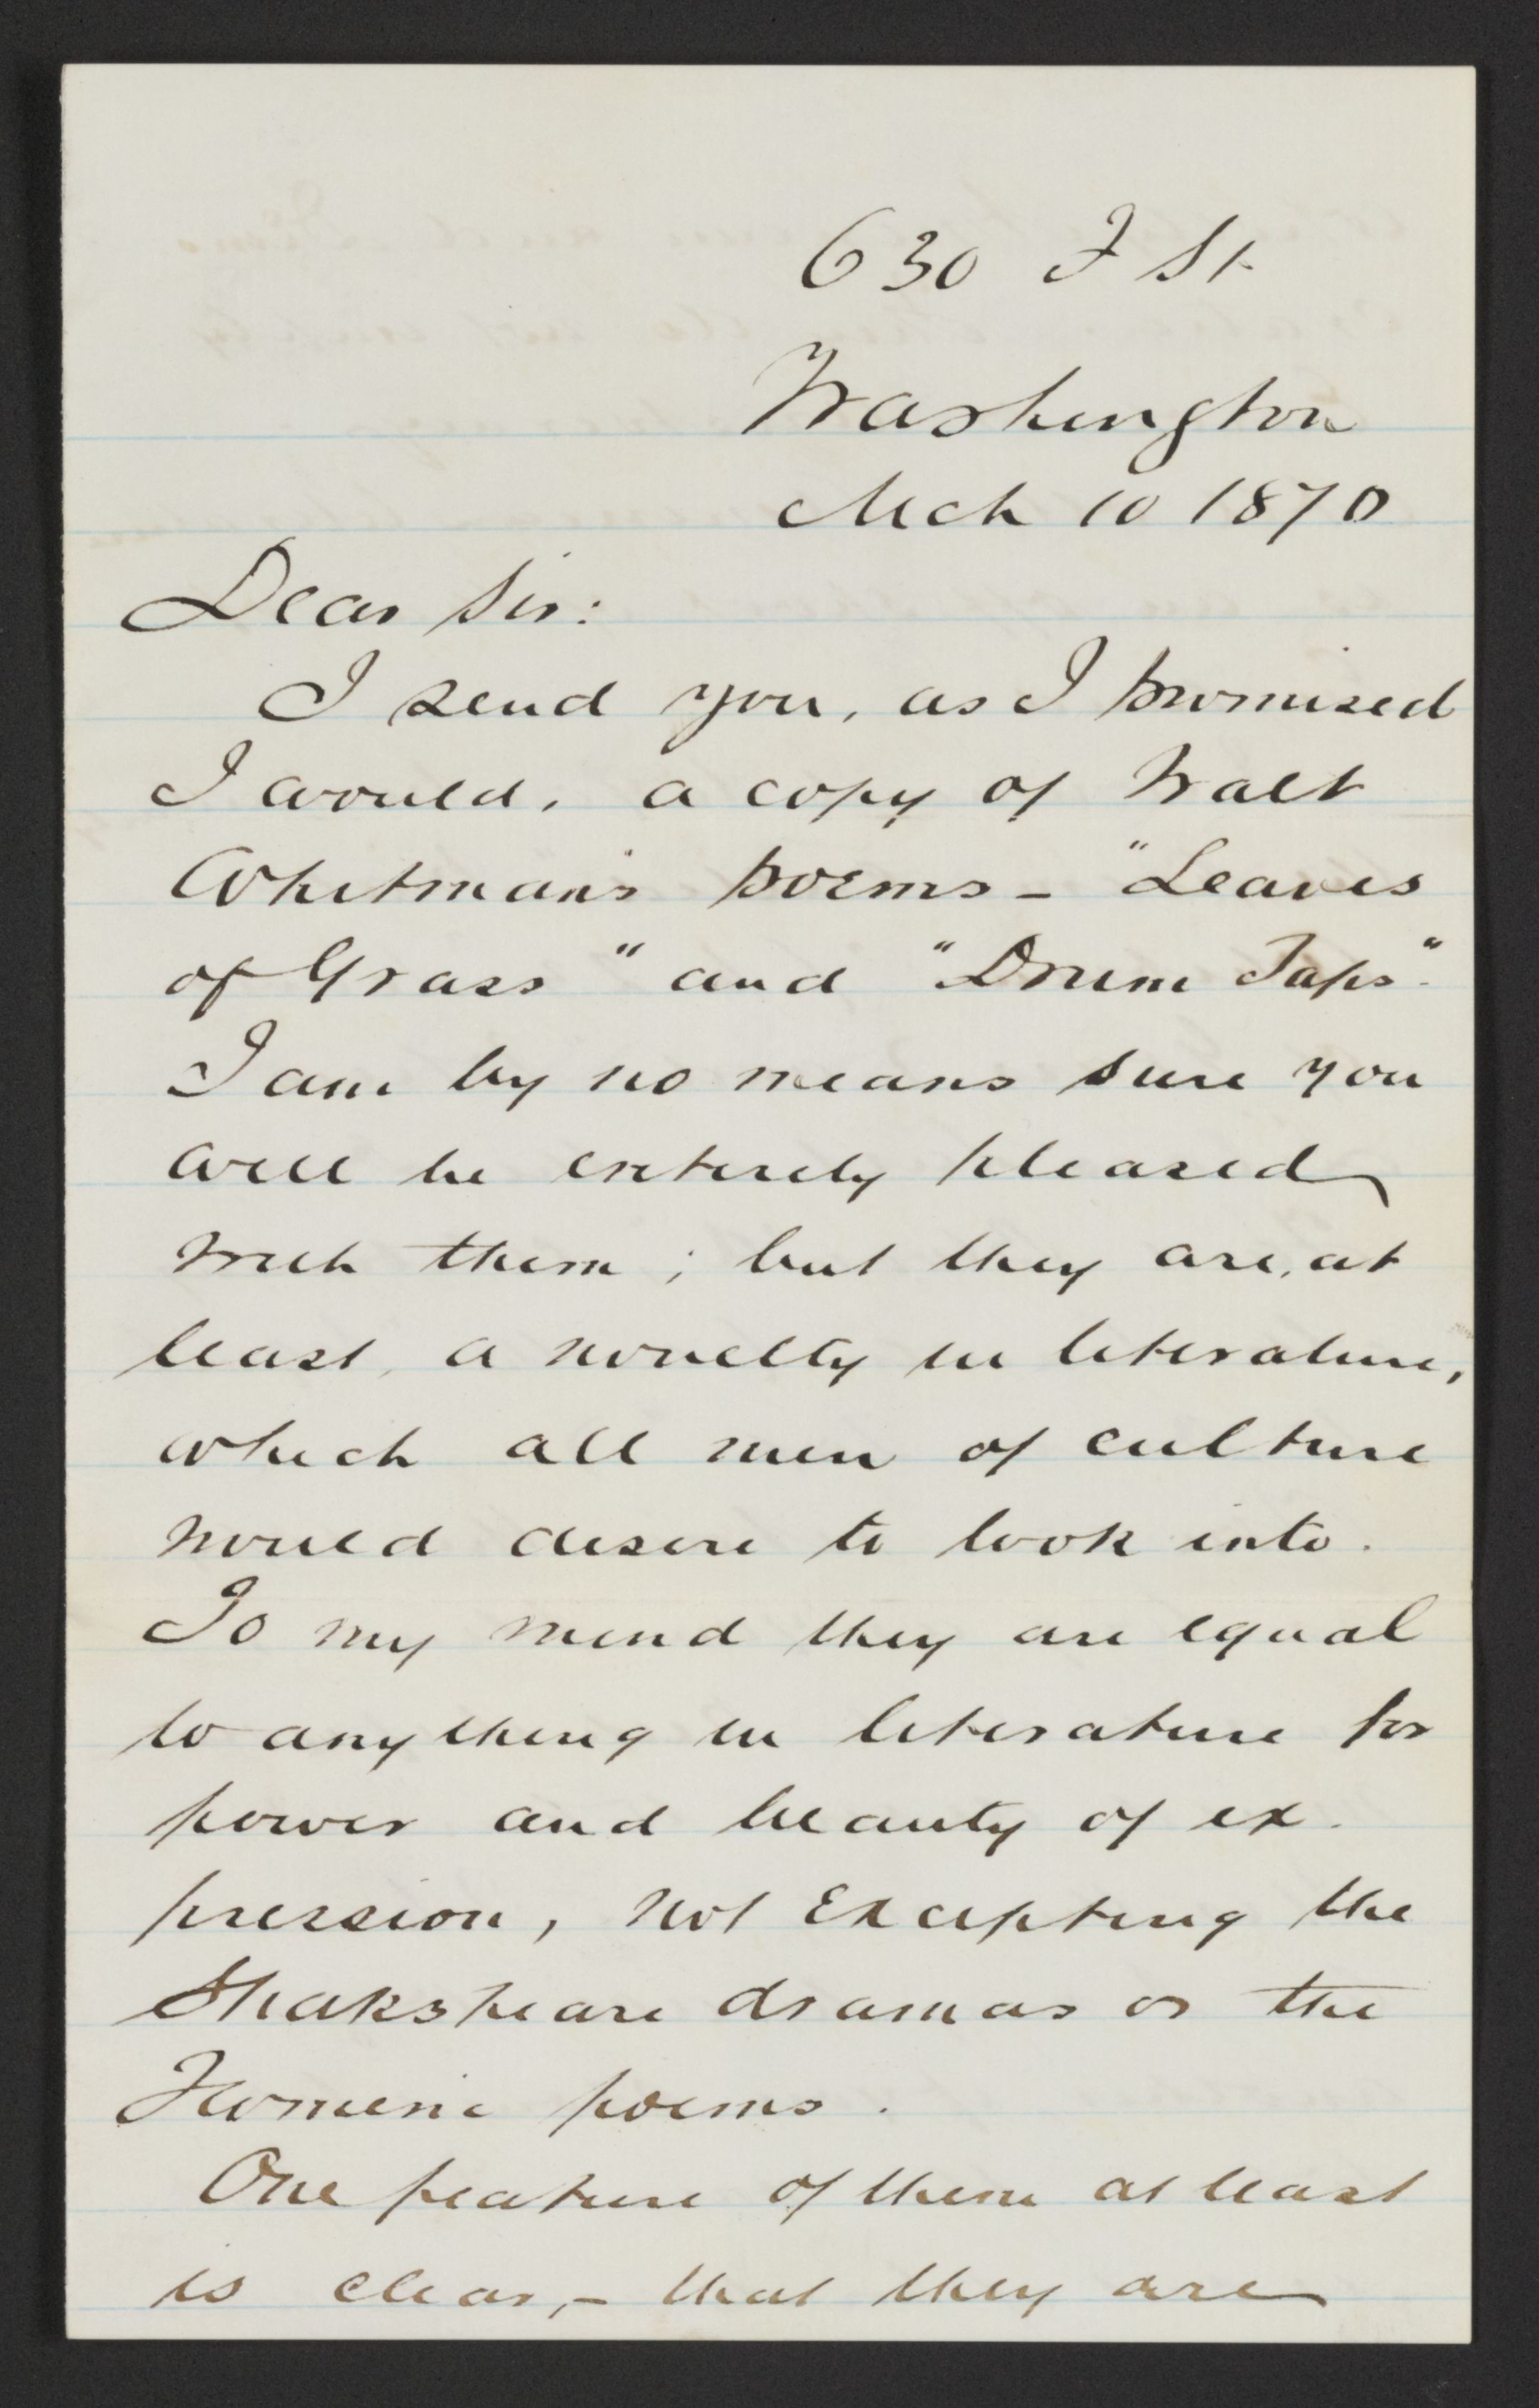 630 F St
Washington
Mch 10 1870
Dear Sir:
I send you, as I promised
I would, a copy of Walt
Whitman's poems - "Leaves
of Grass" and "Drum Taps".
I am by no means sure you
will be entirely pleased
with them; but they are, at
least, a novelty in literature,
which all men of culture
would desire to look into.
To my mind they are equal
to anything in literature for
power and beauty of ex-
pression, not excepting the
Shakspeare dramas or the
Homeric poems.
One feature of them at least
is clear, - that they are